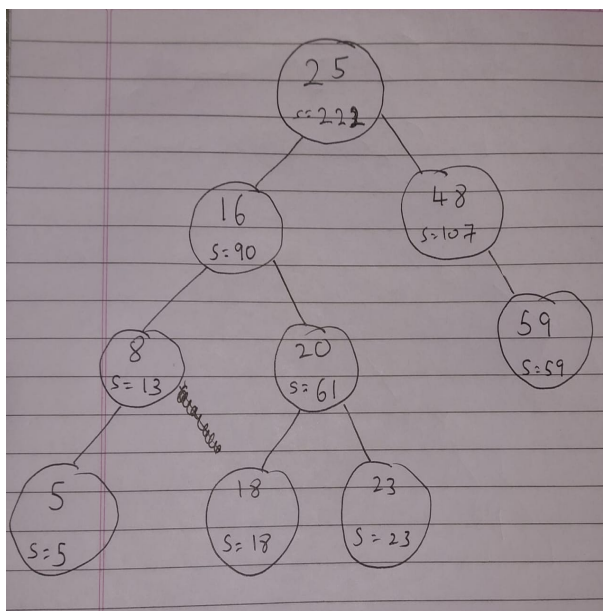 25
s=222
16
s=90
48
s=107
8
s=13
20
s=61
59
s=59
5
s=5
18
s=18
23
s=23